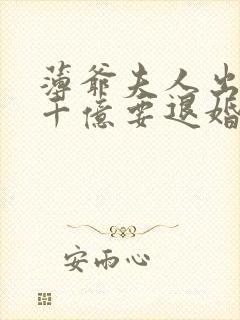 薄爷夫人出
十億要退婚
安雨心